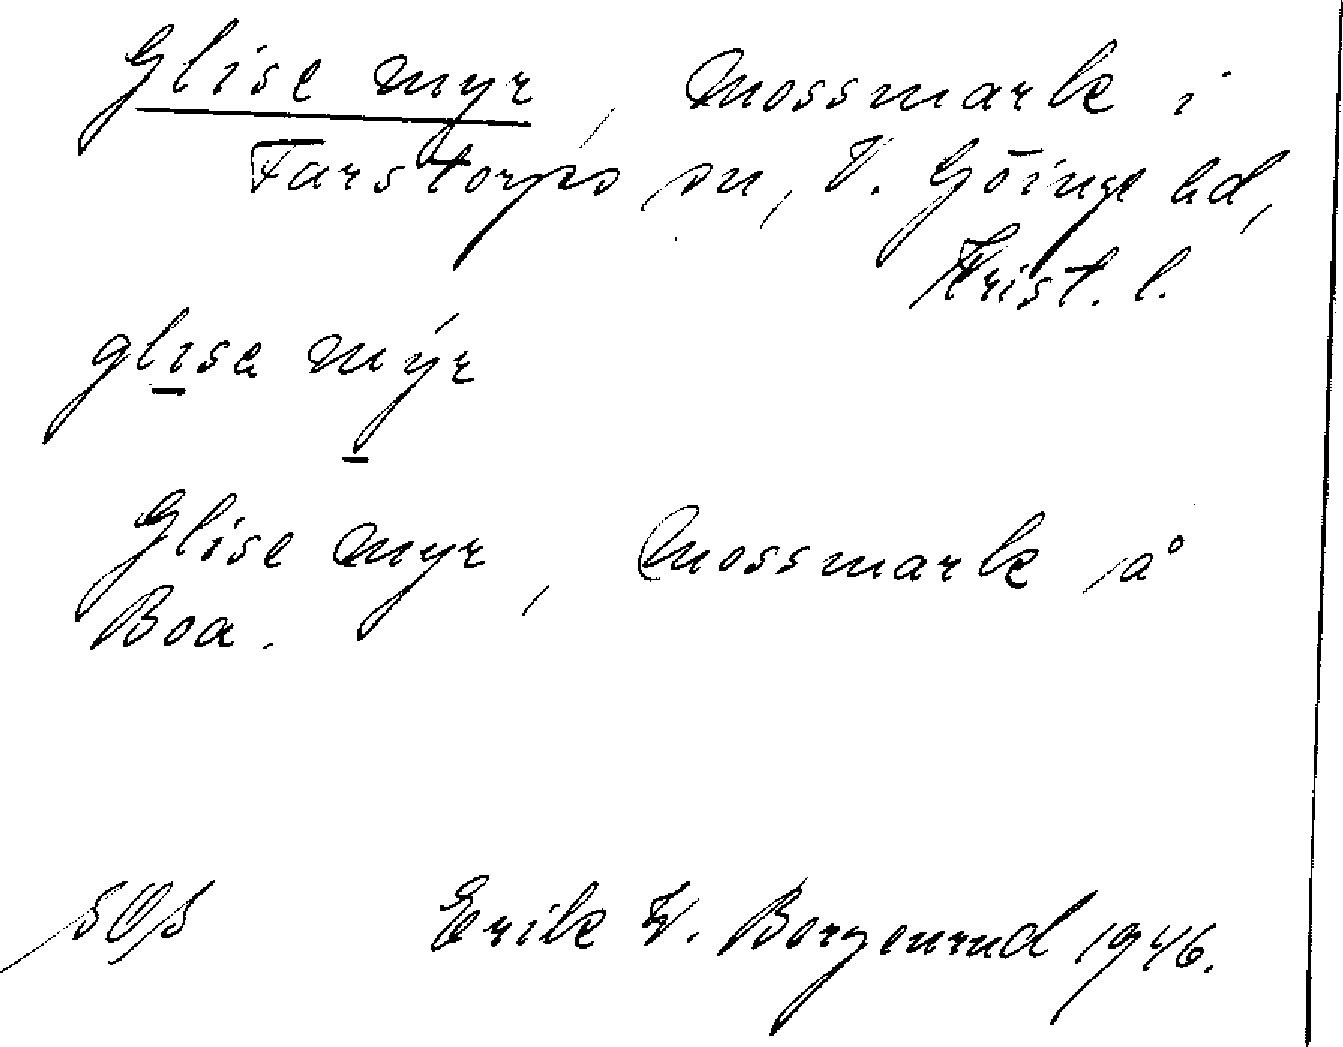 Glise myr, Mossmark i
Farstorps sn, V. Göinge hd,
Krist. l.
glisa mýr
Glise myr, Mossmark å
Boa.
Erik W. Borgenrud 1946.